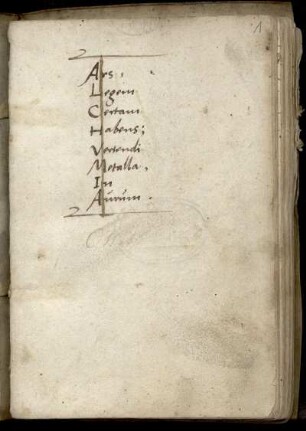 1
Ars,
Legem
Certam
Habens;
Vertendi
Metalla,
In
Aurum.